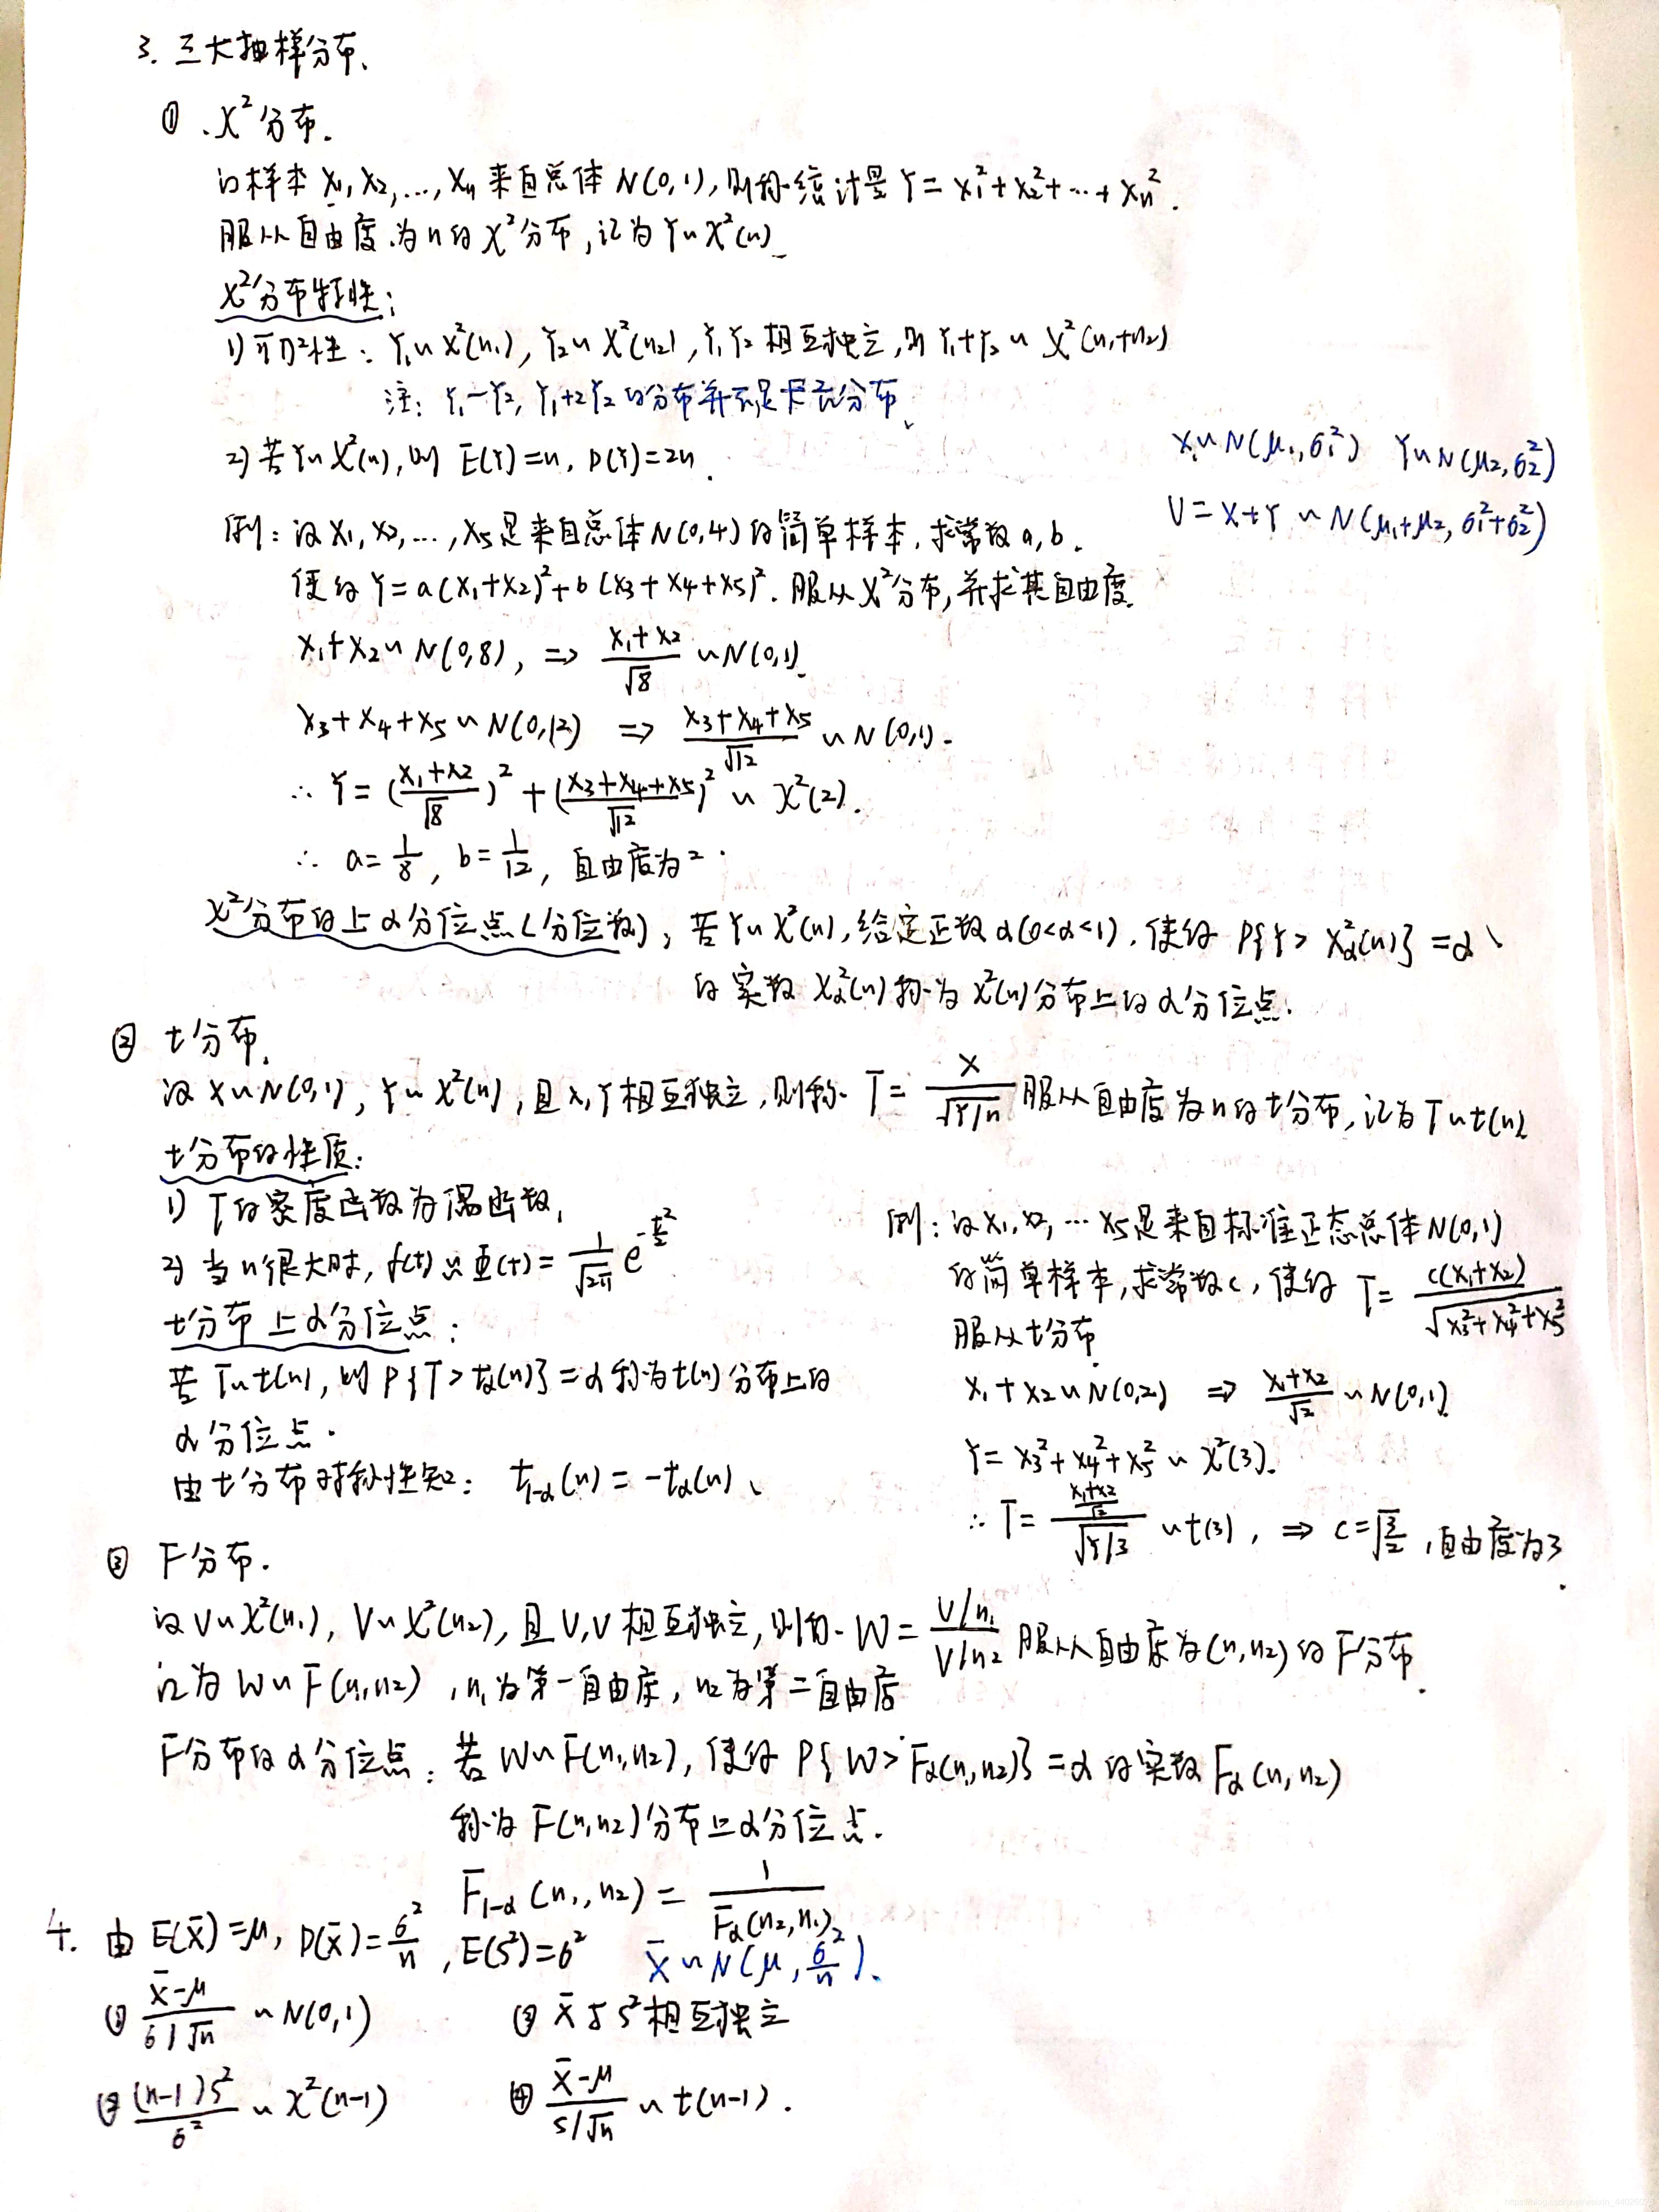 3. 三大抽样分布、
① 、χ²分布.
设样本 X₁, X₂, ..., Xₙ 来自总体 N(0,1), 则称统计量 Y = X₁² + X₂² + ... + Xₙ².
服从自由度为n的χ²分布, 记为 Y~χ²(n)
χ²分布特性:
1) 可加性: Y₁~χ²(n₁), Y₂~χ²(n₂), Y₁Y₂ 相互独立, 则 Y₁+Y₂ ~ χ²(n₁+n₂)
注: Y₁-Y₂, Y₁+2Y₂ 的分布并不是卡方分布
2) 若Y~χ²(n), 则 E(Y)=n, D(Y)=2n.
X~N(μ₁,σ₁²) Y~N(μ₂,σ₂²)
U=X+Y ~ N(μ₁+μ₂, σ₁²+σ₂²)
例: 设X₁, X₂, ..., X₅是来自总体N(0,4)的简单样本, 求常数a, b.
使得 Y = a(X₁+X₂)² + b(X₃+X₄+X₅)². 服从χ²分布, 并求其自由度.
X₁+X₂~N(0,8), ⇒ (X₁+X₂)/√8 ~N(0,1)
X₃+X₄+X₅~N(0,12) ⇒ (X₃+X₄+X₅)/√12 ~N(0,1).
∴ Y = ((X₁+X₂)/√8)² + ((X₃+X₄+X₅)/√12)² ~ χ²(2).
∴ a=1/8, b=1/12, 自由度为2.
χ²分布的上α分位点(分位数); 若Y~χ²(n), 给定正数α(0<α<1), 使得 P{Y > χ²α(n)} = α、
的实数 χ²α(n)称为χ²(n)分布上的α分位点.
② t分布.
设 X~N(0,1), Y~χ²(n), 且X,Y相互独立, 则称 T = X/√(Y/n) 服从自由度为n的t分布, 记为T~t(n)
t分布的性质:
1) T的密度函数为偶函数,
2) 当n很大时, f(t) ≈ Φ(t) = 1/√(2π) e^(-t²/2)
t分布上α分位点:
若 T~t(n), 则 P{T > tα(n)} = α 称为t(n)分布上的
α分位点.
由t分布对称性知: t₁₋α(n) = -tα(n)、
例: 设X₁, X₂, ... X₅是来自标准正态总体N(0,1)
的简单样本, 求常数c, 使得 T = c(X₁+X₂)/√(X₃²+X₄²+X₅²)
服从t分布
X₁+X₂~N(0,2) ⇒ (X₁+X₂)/√2 ~N(0,1)
Y = X₃²+X₄²+X₅² ~ χ²(3).
∴ T = ((X₁+X₂)/√2)/√(Y/3) ~t(3), ⇒ c=√(3/2), 自由度为3.
③ F分布.
设U~χ²(n₁), V~χ²(n₂), 且U,V相互独立, 则称 W = (U/n₁)/(V/n₂) 服从自由度为(n₁,n₂)的F分布.
记为 W~F(n₁,n₂), n₁为第一自由度, n₂为第二自由度
F分布的α分位点: 若 W~F(n₁,n₂), 使得 P{W > Fα(n₁,n₂)} = α 的实数 Fα(n₁,n₂)
称为 F(n₁,n₂)分布上α分位点.
F₁₋α(n₁,n₂) = 1/Fα(n₂,n₁)
4. 由 E(X̄)=μ, D(X̄)=σ²/n, E(S²)=σ² X̄~N(μ, σ²/n).
① (X̄-μ)/(σ/√n) ~ N(0,1) ③ X̄与S²相互独立
② (n-1)S²/σ² ~ χ²(n-1) ④ (X̄-μ)/(S/√n) ~ t(n-1).